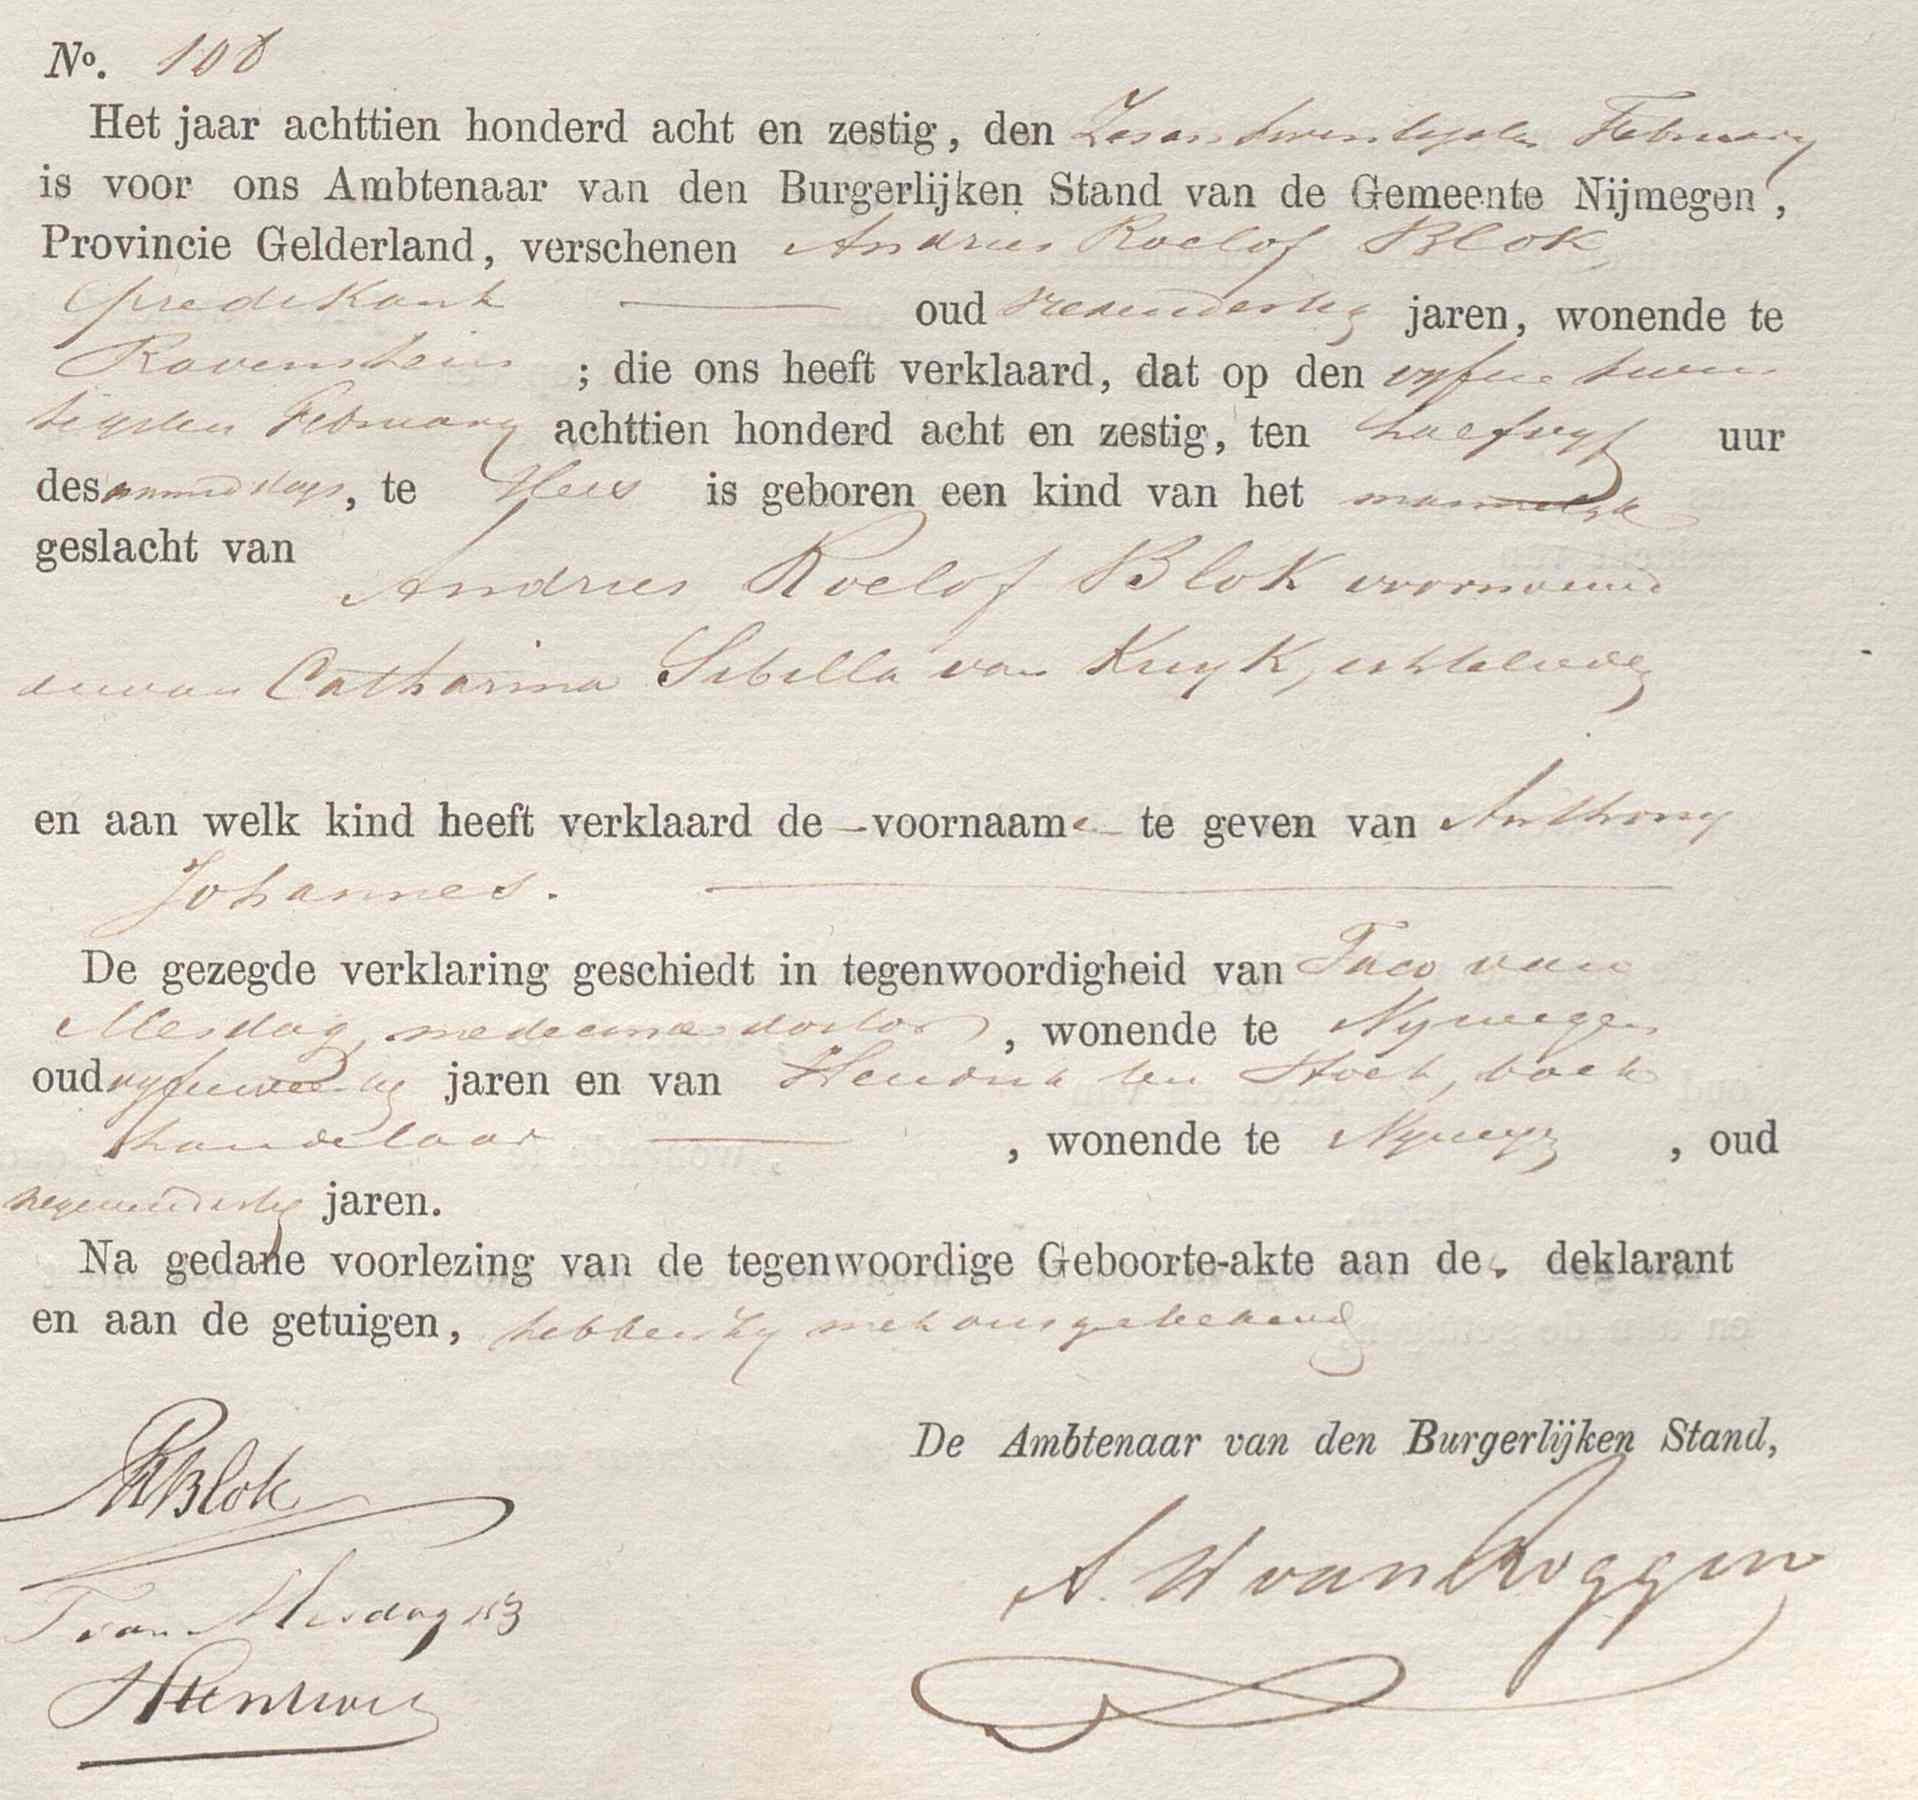 No. 108
Het jaar achttien honderd acht en zestig, den Zesentwintigsten February
is voor ons Ambtenaar van den Burgerlijken Stand van de Gemeente Nijmegen,
Provincie Gelderland, verschenen Andries Roelof Blok,
predikant — oud jaren, wonende te
Ravenstein ; die ons heeft verklaard, dat op den vyfen twin
tigsten February achttien honderd acht en zestig, ten half vyf uur
des namiddags, te Hees is geboren een kind van het mannelyk
geslacht van
Andries Roelof Blok voornoemd
en van Catharina Sibilla van Kuyk, echtelieden
en aan welk kind heeft verklaard de voornaame te geven van Anthony
Johannes. —
De gezegde verklaring geschiedt in tegenwoordigheid van Taco van
Mesdag, medecinae doctor, wonende te Nymegen
oud jaren en van Hendrik ten Hoet, boek
handelaar — , wonende te Nymegen , oud
negenendertig jaren.
Na gedane voorlezing van de tegenwoordige Geboorte-akte aan de. deklarant
en aan de getuigen, hebben zy met ons geteekend
De Ambtenaar van den Burgerlijken Stand,
ARBlok
T van Mesdag
A. W van Roggen